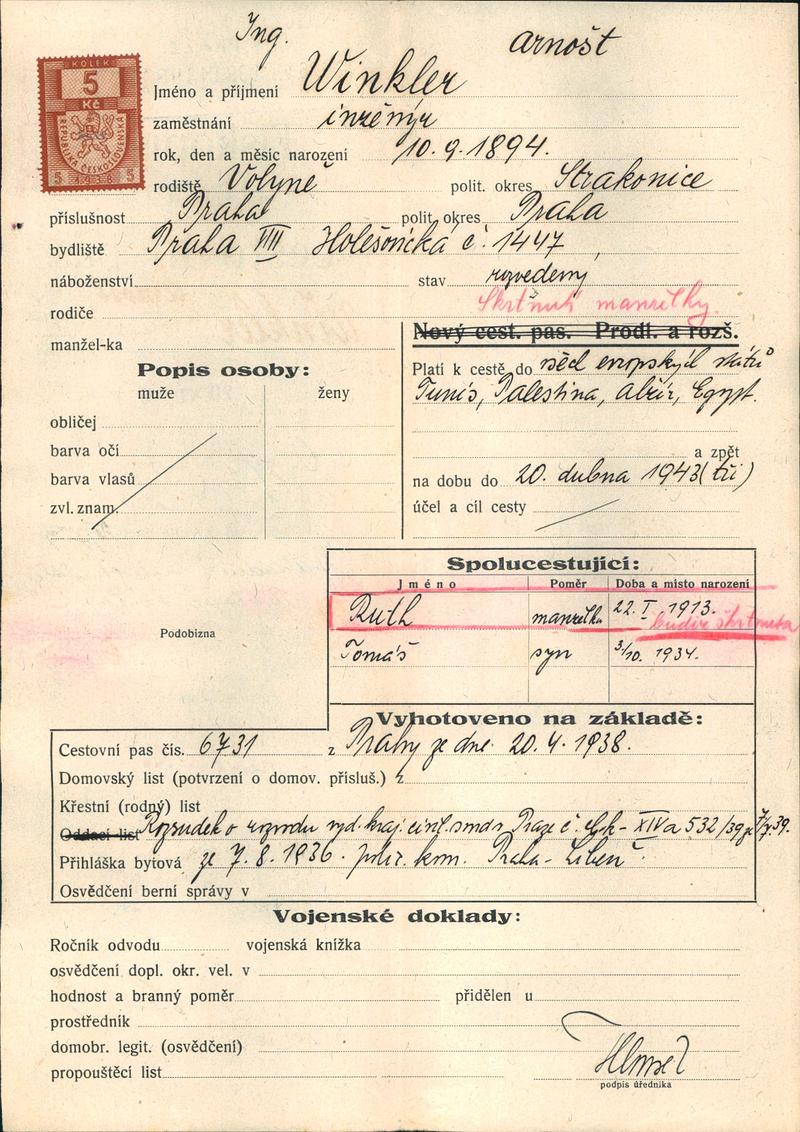 Ing. Arnošt
KOLEK
5
Kč
REPUBLIKA ČESKOSLOVENSKÁ
5 1938 5
Jméno a příjmení Winkler
zaměstnání inženýr
rok, den a měsíc narození 10.9.1894.
rodiště Volyně polit. okres Strakonice
příslušnost Praha polit. okres Praha
bydliště Praha VIII Holešovická č. 1447
náboženství stav rozvedený
Škrtnutí manželky.
rodiče
manžel-ka
Nový cest. pas. Prodl. a rozš.
Popis osoby:
muže ženy
obličej
barva očí
barva vlasů
zvl. znam.
Platí k cestě do všech evropských států
Tunis, Palestina, Alžír, Egypt.
a zpět
na dobu do 20. dubna 1943 (tří)
účel a cíl cesty
Podobizna
Spolucestující:
Jméno Poměr Doba a místo narození
Ruth manželka 22. I. 1913.
budiž škrtnuta
Tomáš syn 3/10. 1934.
Vyhotoveno na základě:
Cestovní pas čís. 6731 z Prahy ze dne 20.4.1938.
Domovský list (potvrzení o domov. přísluš.) z
Křestní (rodný) list
Oddací list Rozsudek o rozvodu kraj. civil. Praze č. XIVa 532/39
Přihláška bytová ze 7.8.1936. polic. kom. Praha-Libeň
Osvědčení berní správy v
Vojenské doklady:
Ročník odvodu vojenská knížka
osvědčení dopl. okr. vel. v
hodnost a branný poměr přidělen u
prostředník
domobr. legit. (osvědčení)
propouštěcí list
podpis úředníka